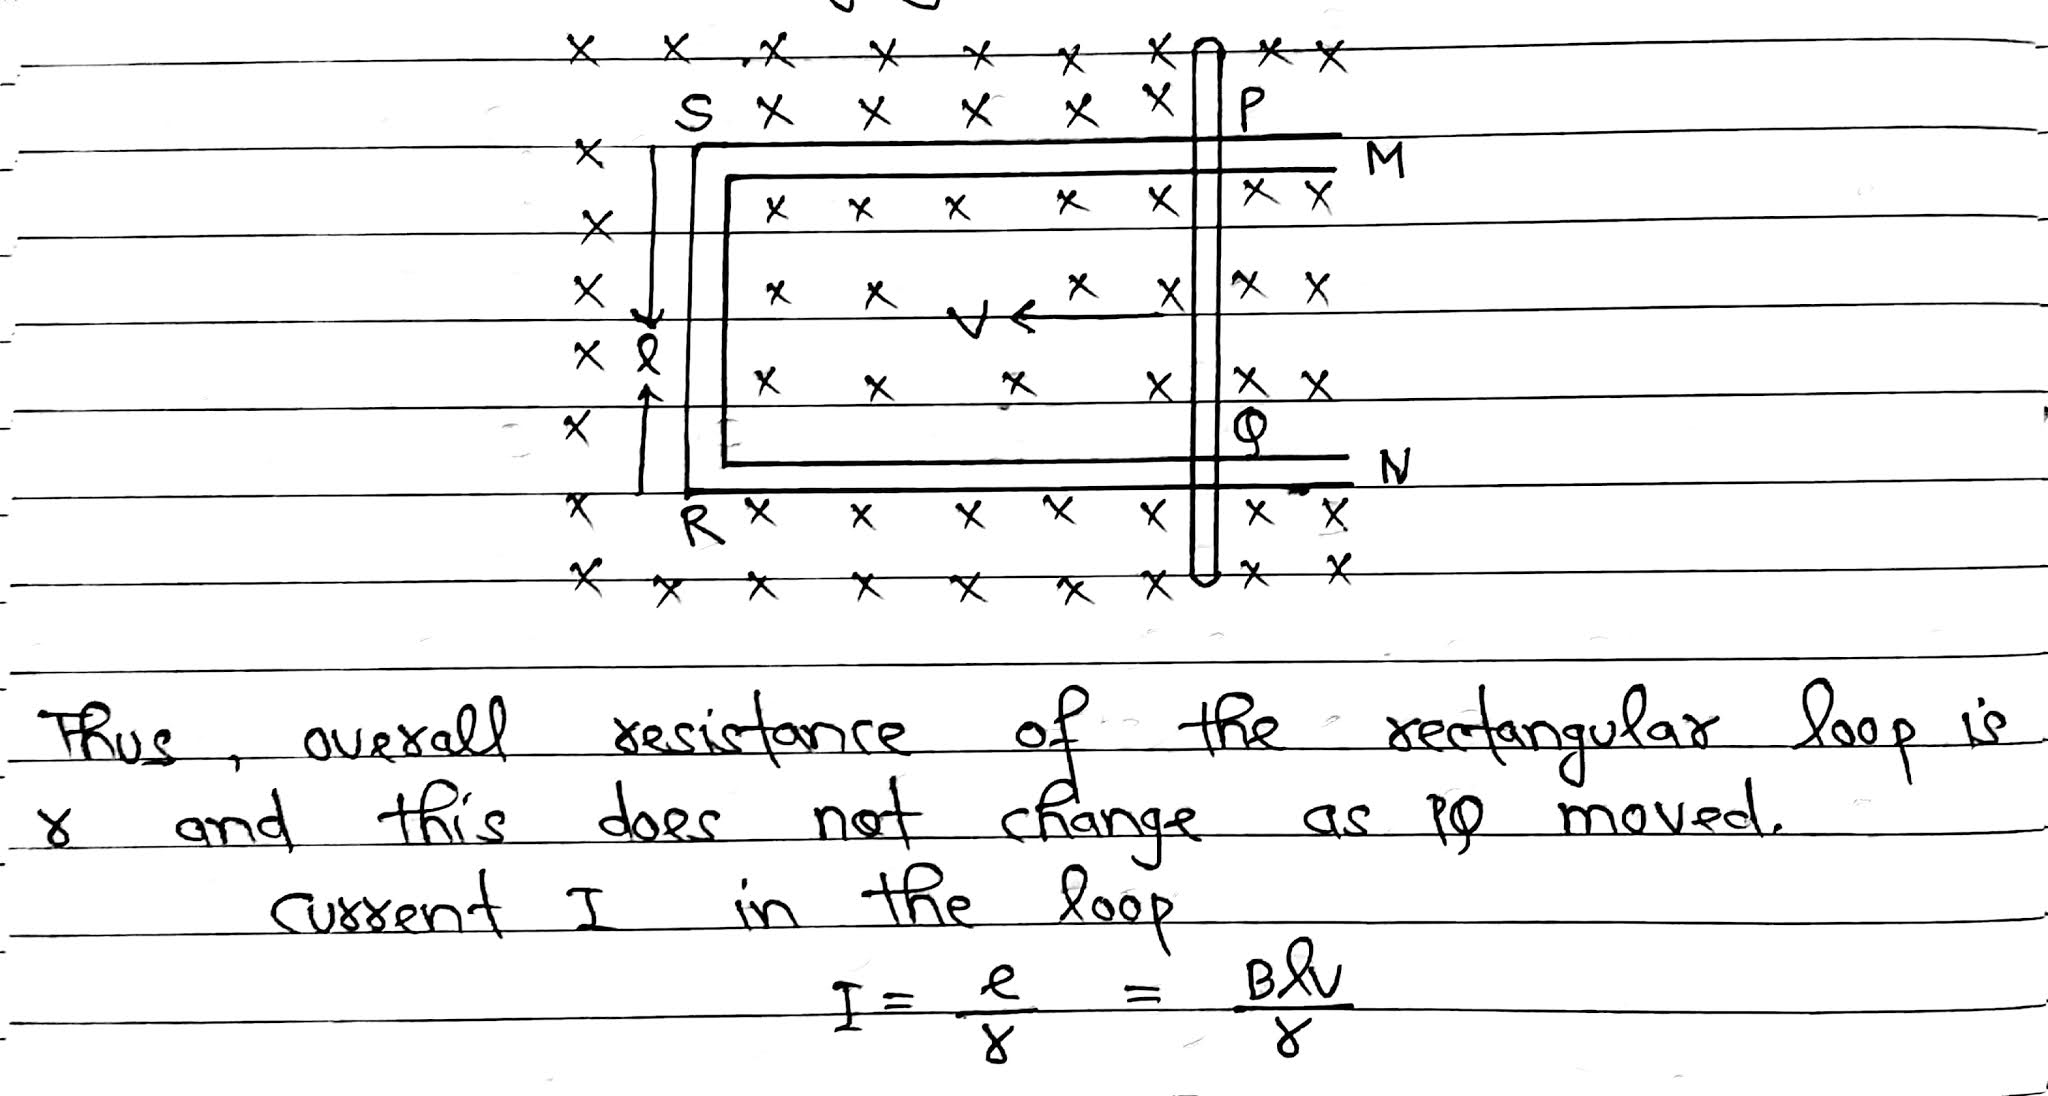 x x x x x x x x x
S x x x x x P
x M
x x x x x x x
x
x x x x x x x
V
x l x x x x x x
x Q
N
x R x x x x x x x
x x x x x x x x x
Thus, overall resistance of the rectangular loop is
r and this does not change as PQ moved.
current I in the loop
I = e/r = Blv/r